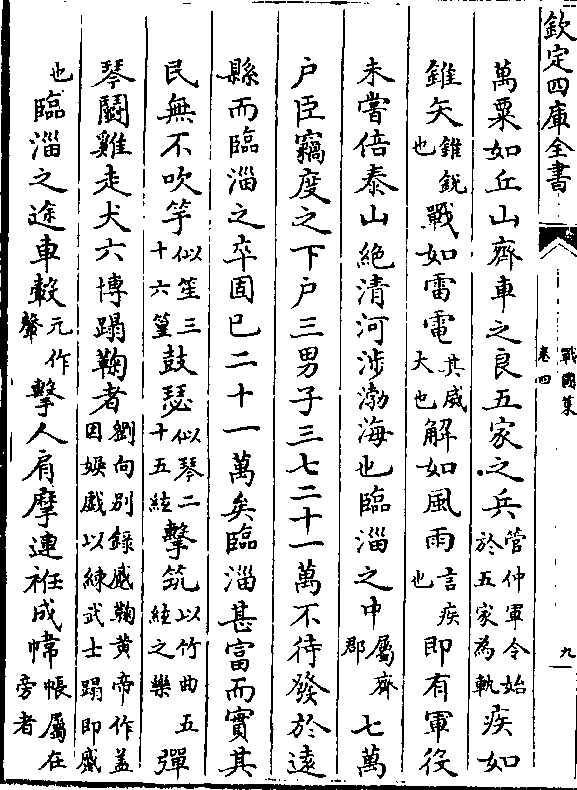 欽定四庫全書
戰國策
卷四
九
萬粟如丘山齊車之良五家之兵管仲軍令始於五家為軌疾如
錐矢錐銳也戰如雷電其威大也解如風雨言疾也即有軍役
未嘗倍泰山絶清河涉渤海也臨淄之中屬齊郡七萬
户臣竊度之下户三男子三七二十一萬不待發於遠
縣而臨淄之卒固已二十一萬矣臨淄甚富而實其
民無不吹竽似笙三十六簧鼓瑟似琴二十五絃擊筑以竹曲五絃之樂彈
琴鬭雞走犬六博蹋鞠者劉向别録蹙鞠黄帝作盖因娱戲以練武士蹋即蹙
也臨淄之途車轂元作聲擊人肩摩連袵成幃帳屬在旁者